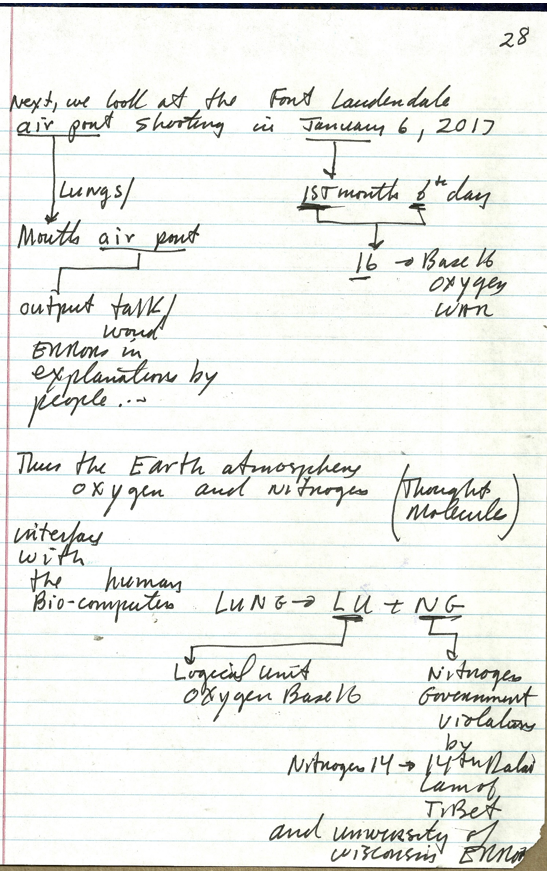 28
Next, we look at the Font Laudendale
air pont shooting in January 6, 2017
Lungs/
1ST month 6th day
Mouth air pont
16 → Base 16
oxygen
WAR
output talk/
word
ERRORS in
explanations by
people ...
Thus the Earth atmosphere
oxygen and Nitrogen (Thought
Molecule)
interface
with
the human
Bio-computer
LUNG → LU + NG
Logical unit
oxygen Base 16
Nitrogen
Government
violations
by
Nitrogen 14 → 14th Dalai
Lama of
TiBet
and university of
wisconsin ERROR